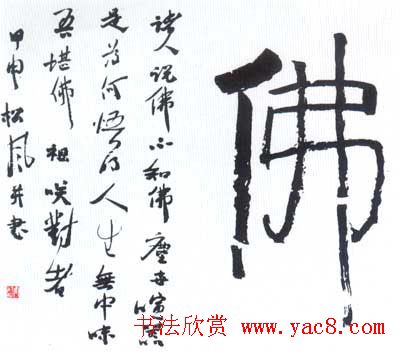 佛
诸人说佛不知佛塵世喧嚣
是为何悟得人生無中味
吾堪佛祖咲對者
甲申松風并书
书法欣赏 www.yac8.com